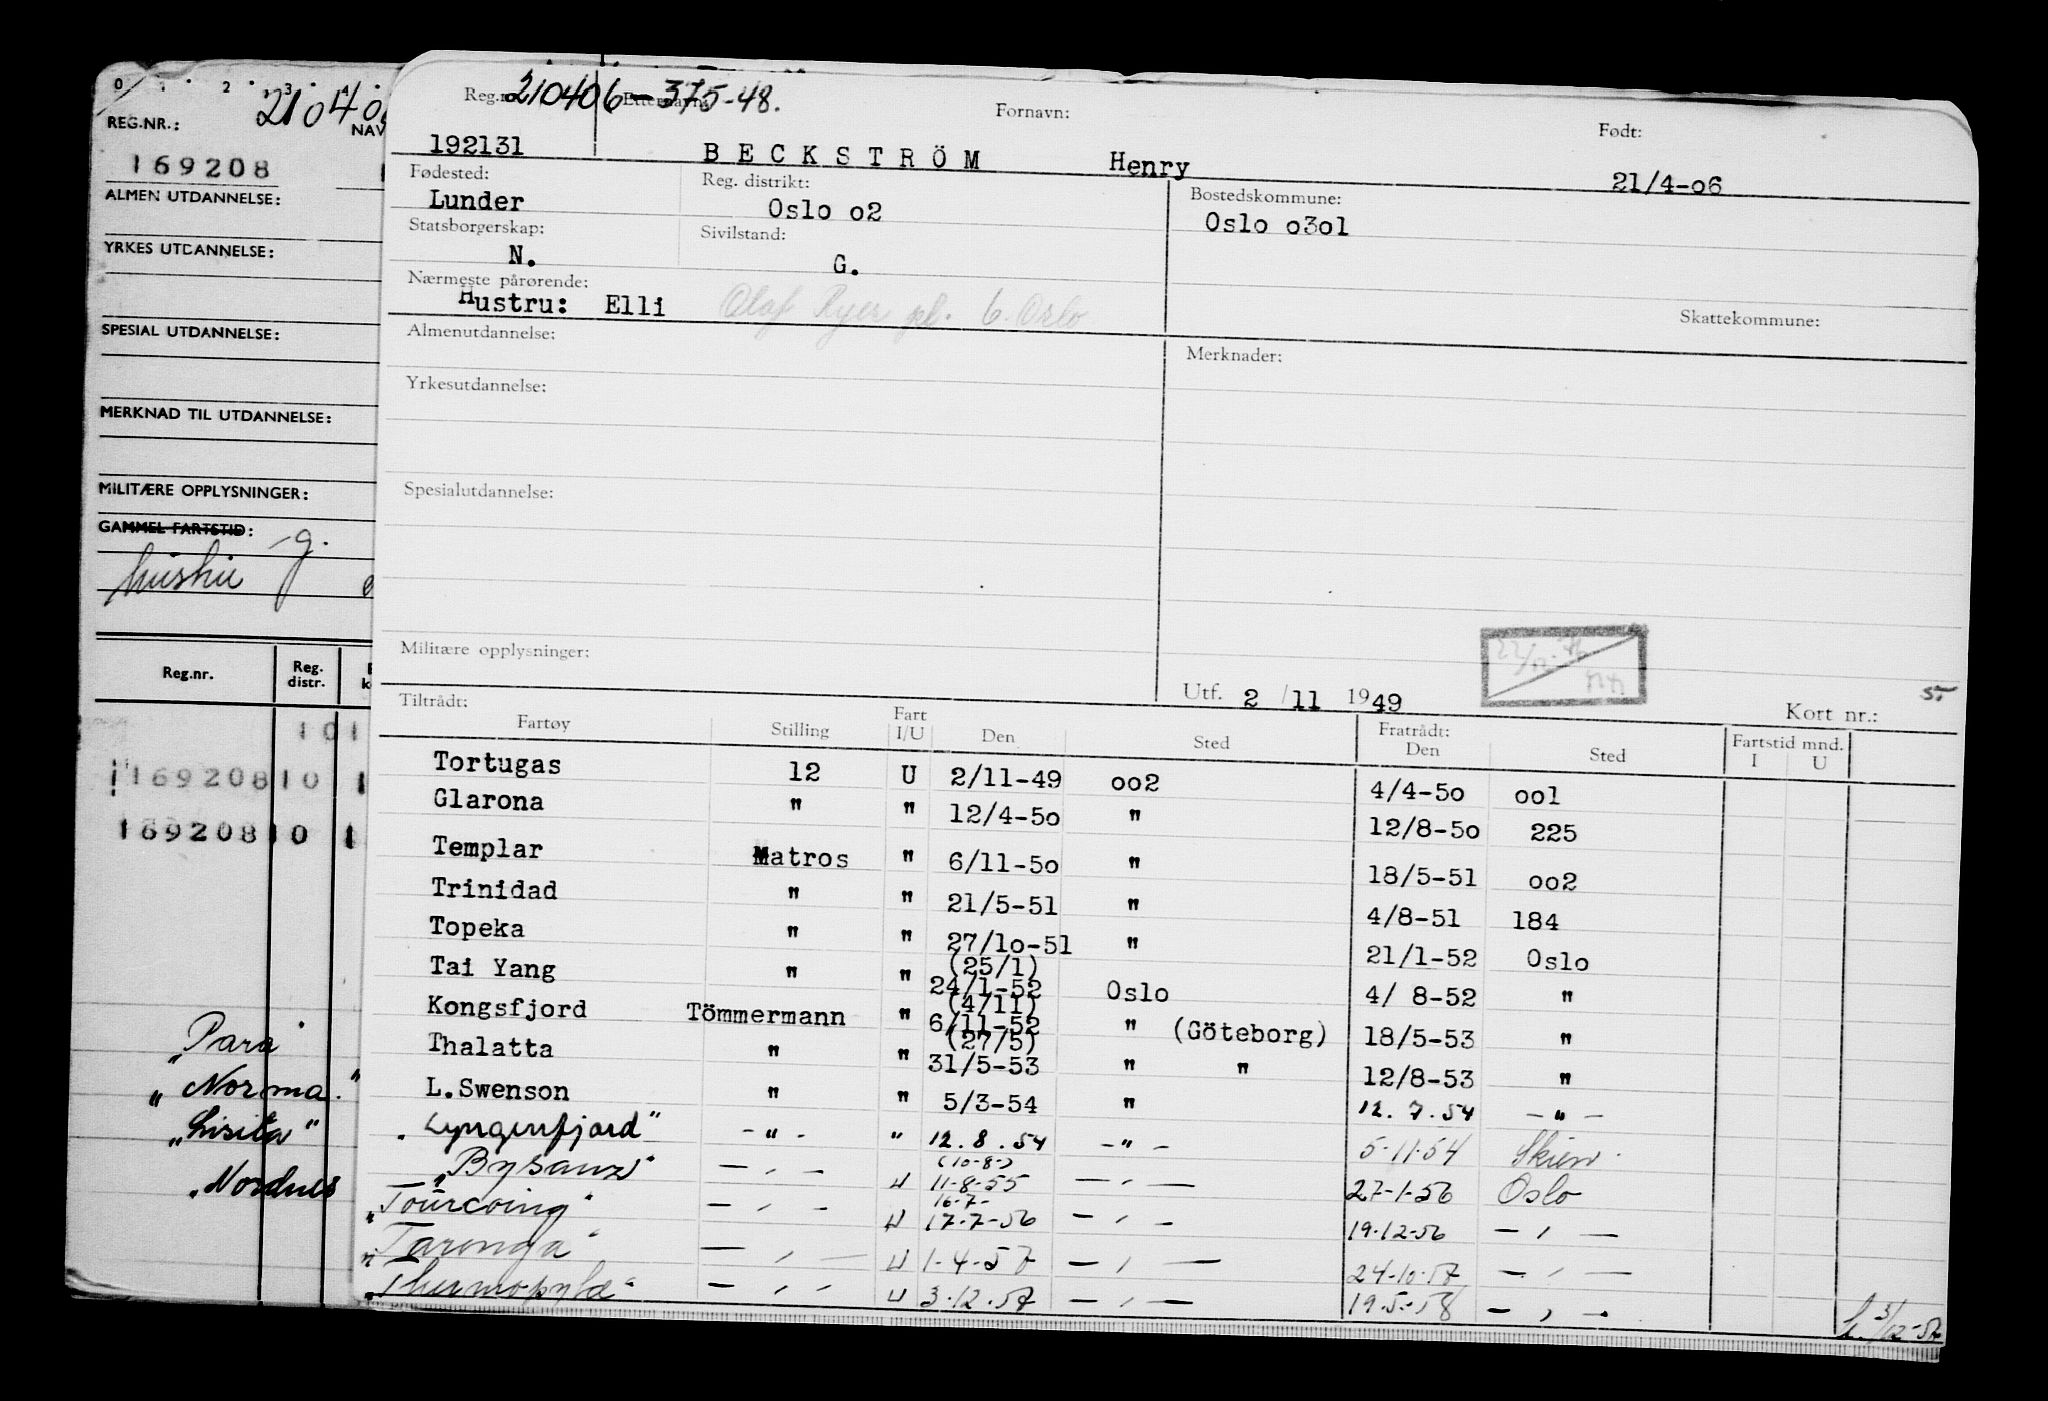 0 1 2 3
210406
REG.NR.:
NAV
169208
ALMEN UTDANNELSE:
YRKES UTDANNELSE:
SPESIAL UTDANNELSE:
MERKNAD TIL UTDANNELSE:
MILITÆRE OPPLYSNINGER:
GAMMEL FARTSTID:
g.
Reg.nr. Reg. distr.
101
169208 10 1
169208 10 1
"Para"
"Norma."
"Lisita"
"Nordnes
210406-375-48.
Reg.nr. Etternavn: Fornavn: Født:
192131 BECKSTRÖM Henry 21/4-o6
Fødested: Reg. distrikt: Bostedskommune:
Lunder Oslo o2 Oslo o3ol
Statsborgerskap: Sivilstand:
N. G.
Nærmeste pårørende: Skattekommune:
Hustru: Elli Olaf Ryes pl. 6. Oslo
Almenutdannelse: Merknader:
Yrkesutdannelse:
Spesialutdannelse:
Militære opplysninger:
Utf. 2 /11 1949 Kort nr.:
Tiltrådt: Fratrådt: Fartstid mnd.
Fartøy Stilling Fart I/U Den Sted Den Sted I U
Tortugas 12 U 2/11-49 oo2 4/4-5o ool
Glarona " " 12/4-5o " 12/8-5o 225
Templar Matros " 6/11-5o " 18/5-51 oo2
Trinidad " " 21/5-51 " 4/8-51 184
Topeka " " 27/lo-51 " 21/1-52 Oslo
(25/1)
Tai Yang " " 24/1-52 Oslo 4/ 8-52 "
(4/11)
Kongsfjord Tömmermann " 6/11-52 " (Göteborg) 18/5-53 "
(27/5)
Thalatta " " 31/5-53 " " 12/8-53 "
L.Swenson " " 5/3-54 " 12.7.54 - " -
"Lyngenfjord" - " - " 12.8.54 - " - 5-11-54 Skien.
(10-8-)
"Bysanz" - " - U 11-8-55 - " - 27-1-56 Oslo
16-7-
"Tourcoing" - " - U 17-7-56 - " - 19-12-56 - " -
"Taronga" - " - U 1-4-57 - " - 24-10-57 - " -
"Thermopylæ" - " - U 3-12-57 - " - 19-5-58 - " -